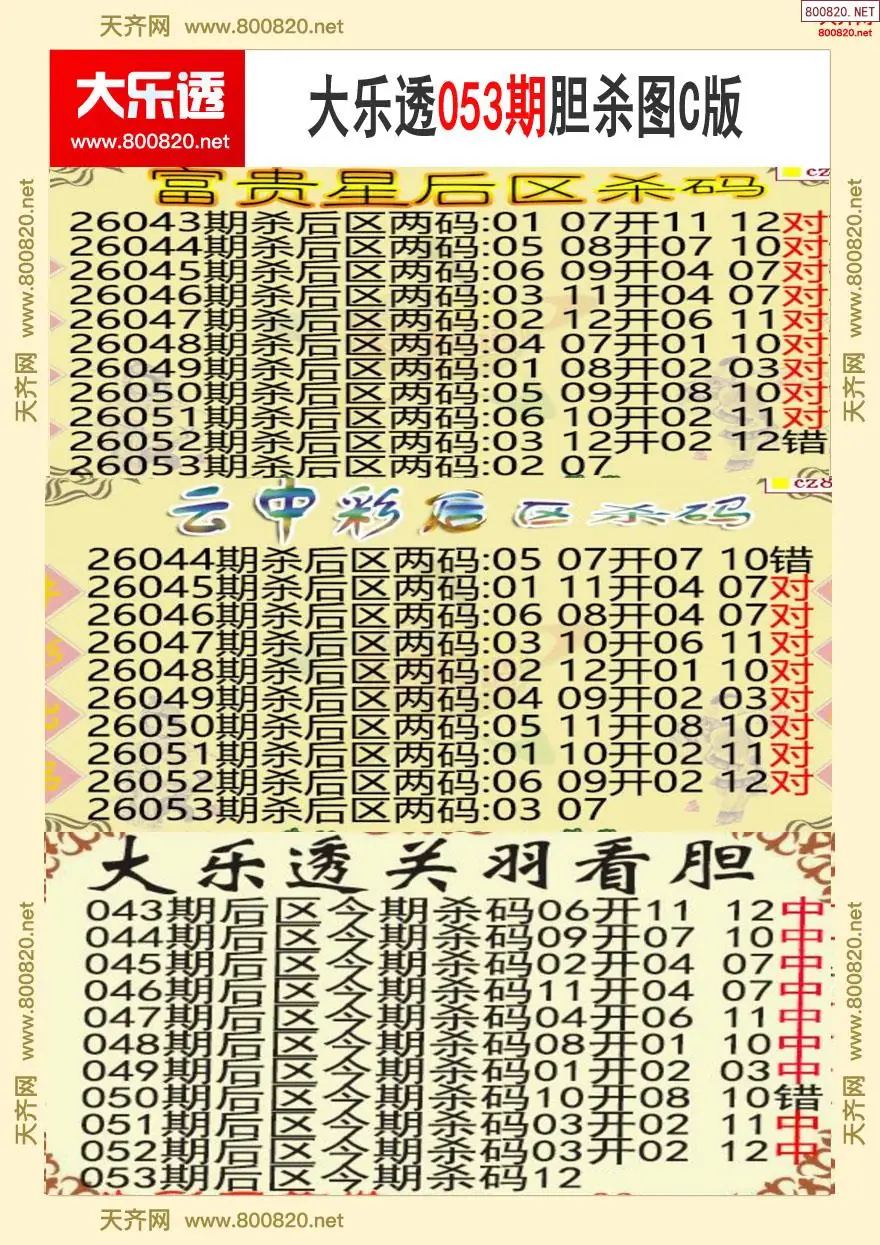 天齐网 www.800820.net
800820.NET
800820.net
大乐透
www.800820.net
大乐透053期胆杀图C版
富贵星后区杀码
cz
26043期杀后区两码:01 07开11 12对
26044期杀后区两码:05 08开07 10对
26045期杀后区两码:06 09开04 07对
26046期杀后区两码:03 11开04 07对
26047期杀后区两码:02 12开06 11对
26048期杀后区两码:04 07开01 10对
26049期杀后区两码:01 08开02 03对
26050期杀后区两码:05 09开08 10对
26051期杀后区两码:06 10开02 11对
26052期杀后区两码:03 12开02 12错
26053期杀后区两码:02 07
云中彩后区杀码
cz8
26044期杀后区两码:05 07开07 10错
26045期杀后区两码:01 11开04 07对
26046期杀后区两码:06 08开04 07对
26047期杀后区两码:03 10开06 11对
26048期杀后区两码:02 12开01 10对
26049期杀后区两码:04 09开02 03对
26050期杀后区两码:05 11开08 10对
26051期杀后区两码:01 10开02 11对
26052期杀后区两码:06 09开02 12对
26053期杀后区两码:03 07
大乐透关羽看胆
043期后区今期杀码06开11 12中
044期后区今期杀码09开07 10中
045期后区今期杀码02开04 07中
046期后区今期杀码11开04 07中
047期后区今期杀码04开06 11中
048期后区今期杀码08开01 10中
049期后区今期杀码01开02 03中
050期后区今期杀码10开08 10错
051期后区今期杀码03开02 11中
052期后区今期杀码03开02 12中
053期后区今期杀码12
天齐网 www.800820.net
天齐网 www.800820.net
天齐网 www.800820.net
天齐网 www.800820.net
天齐网 www.800820.net